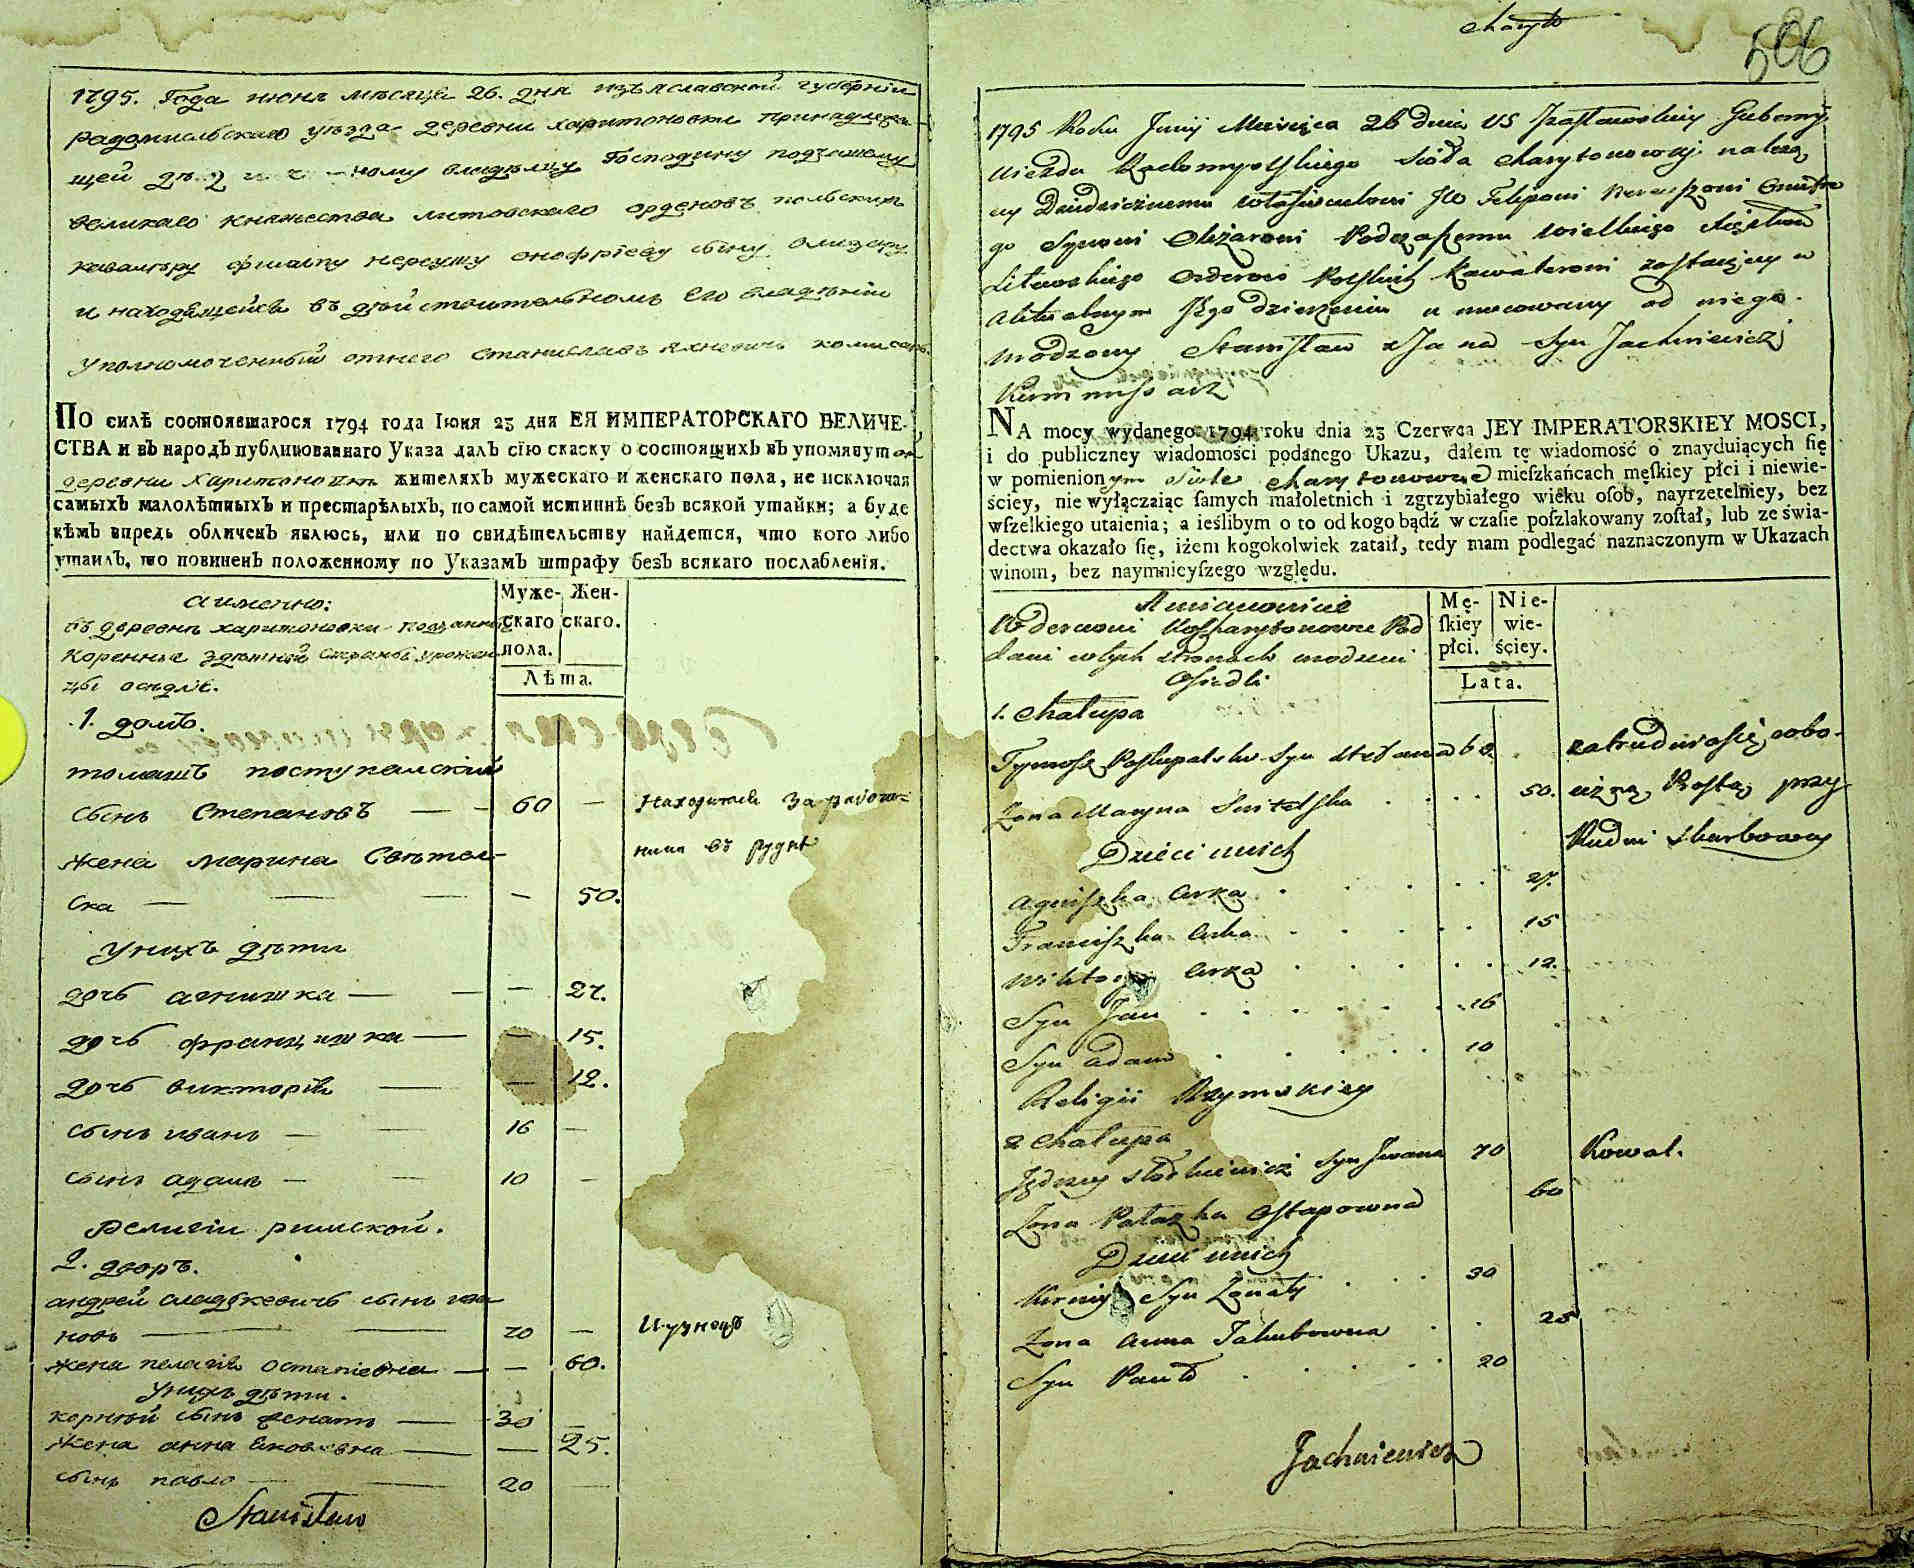 1795. Года июня мѣсяца 26. дня изъяславской губерніи
радомысльскаго уѣзда деревни харитоновки принадлежа-
щей владѣлцу Господину подчашему
великаго княжества литовскаго орденовъ польскихъ
кавалѣру филипу нереушу онофріеву сыну олизару
и находящейся въ дѣйствительномъ его владѣніи
уполномоченный отнего станиславъ яхневичъ комисаръ
По силѣ состоявшагося 1794 года Іюня 23 дня ЕЯ ИМПЕРАТОРСКАГО ВЕЛИЧЕ-
СТВА и въ народъ публикованнаго Указа далъ сію скаску о состоящихъ въ упомянутой
деревни Харитоновки жителяхъ мужескаго и женскаго пола, не исключая
самыхъ малолѣтныхъ и престарѣлыхъ, по самой истиннѣ безъ всякой утайки; а буде
кѣмъ впредь обличенъ явлюсь, или по свидѣтельству найдется, что кого либо
утаилъ, то повиненъ положенному по Указамъ штрафу безъ всякаго послабленія.
а имянно:
въ деревнѣ харитоновки подданные
коренные здѣшней страны урожен
цы оседлые.
Муже- Жен-
скаго скаго.
пола.
Лѣта.
1. домъ.
томашъ поступалскій
сынъ Степановъ — 60 — Находится за работ-
ника въ рудкѣ
жена марина Свѣтел-
ска — — 50.
у нихъ дѣти
дочь агнишка — — 27.
дочь францишка — — 15.
дочь викторія — — 12.
сынъ иванъ — 16 —
сынъ адамъ — 10 —
Религіи римской.
2. дворъ.
андрей сладкевичь сынъ ива
новъ — 70 — Кузнецъ
жена пелагія остапіевна — — 60.
у нихъ дѣти.
корнѣй сынъ женатъ — 30 —
жена анна яковлевна — — 25.
сынъ павло — 20 —
Stanisław
Charyto
506
1795 Roku Junij Miesięca 26 dnia US Izasławskiey Guberny
Uiezdu Radomyslskiego sioła Charytonowki należą
cy Dziedzicznemu właścicielowi JW Filiponi Nereuszoni Onufre
go Synowi Olizaroni Podczaszemu Wielkiego Xięstwa
Litewskiego Orderow Polskich Kawaleroni zostaiący w
aktualnym Jego dzierżeniu umocowany od niego
Urodzony Stanisław z Jana Syn Jachniewicz
Kommissarz
NA mocy wydanego 1794 roku dnia 23 Czerwca JEY IMPERATORSKIEY MOSCI,
i do publiczney wiadomości podanego Ukazu, dałem tę wiadomość o znayduiących ſię
w pomienionym siole Charytonowce mieſzkańcach męſkiey płci i niewie-
ściey, nie wyłączaiąc ſamych małoletnich i zgrzybiałego wieku oſob, nayrzetelniey, bez
wſzelkiego utaienia; a ieślibym o to od kogo bądź w czaſie poſzlakowany zoſtał, lub ze świa-
dectwa okazało ſię, iżem kogokolwiek zataił, tedy mam podlegać naznaczonym w Ukazach
winom, bez naymnieyſzego względu.
A mianowicie
W derewni Charytonowce Pod
dani w tych stronach urodzeni
Osiedli
Mę- Nie-
ſkiey wie-
płci. ściey.
Lata.
1. Chałupa
Tymosz Postupalski Syn Stefana 60. zatrudnia się robo-
Żona Maryna Switelska 50. cizną Prostą przy
Rudni skarbowey
Dzieci u nich
Agniszka Curka 27.
Franciszka Curka 15
Wiktorya Curka 12.
Syn Jan 16
Syn Adam 10
Religii Rzymskiey
2 Chałupa
Jędrzey Słodkiewicz Syn Jwana 70 Kowal.
Żona Pałazka Ostapowna 60
Dzieci u nich
Kirniy Syn Żonaty 30
Żona Anna Jakubowna 25
Syn Pawło 20
Jachniewicz